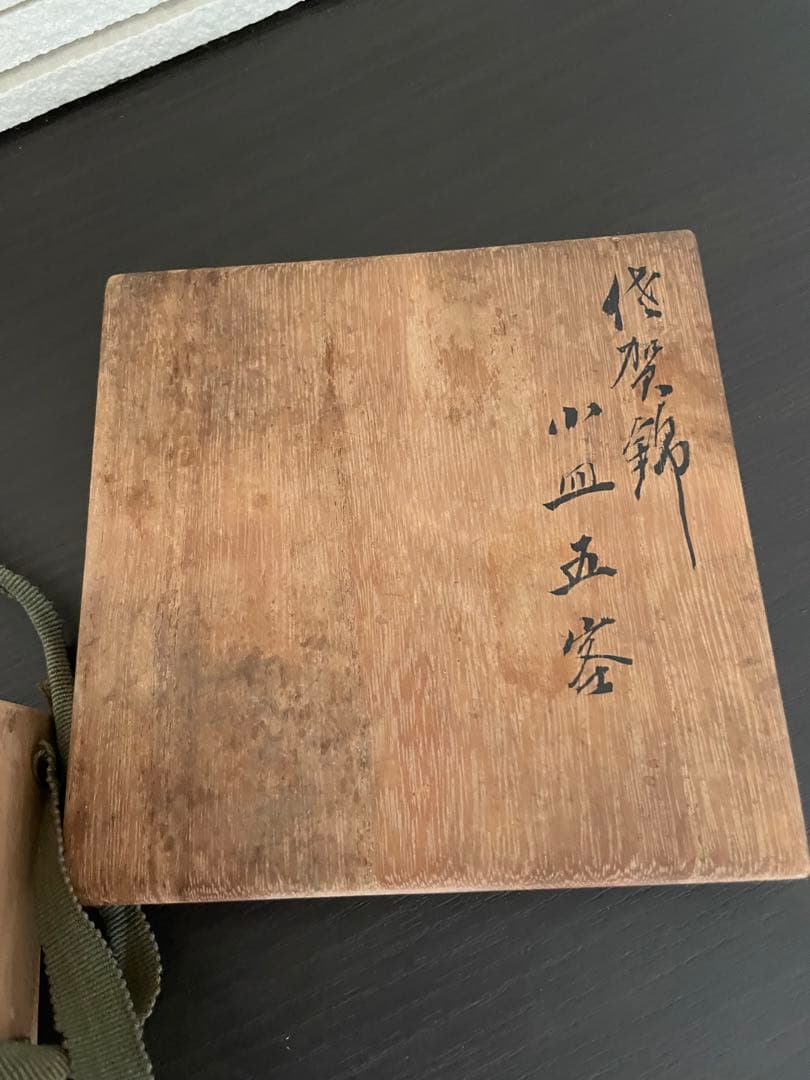 佐賀錦
小皿五客